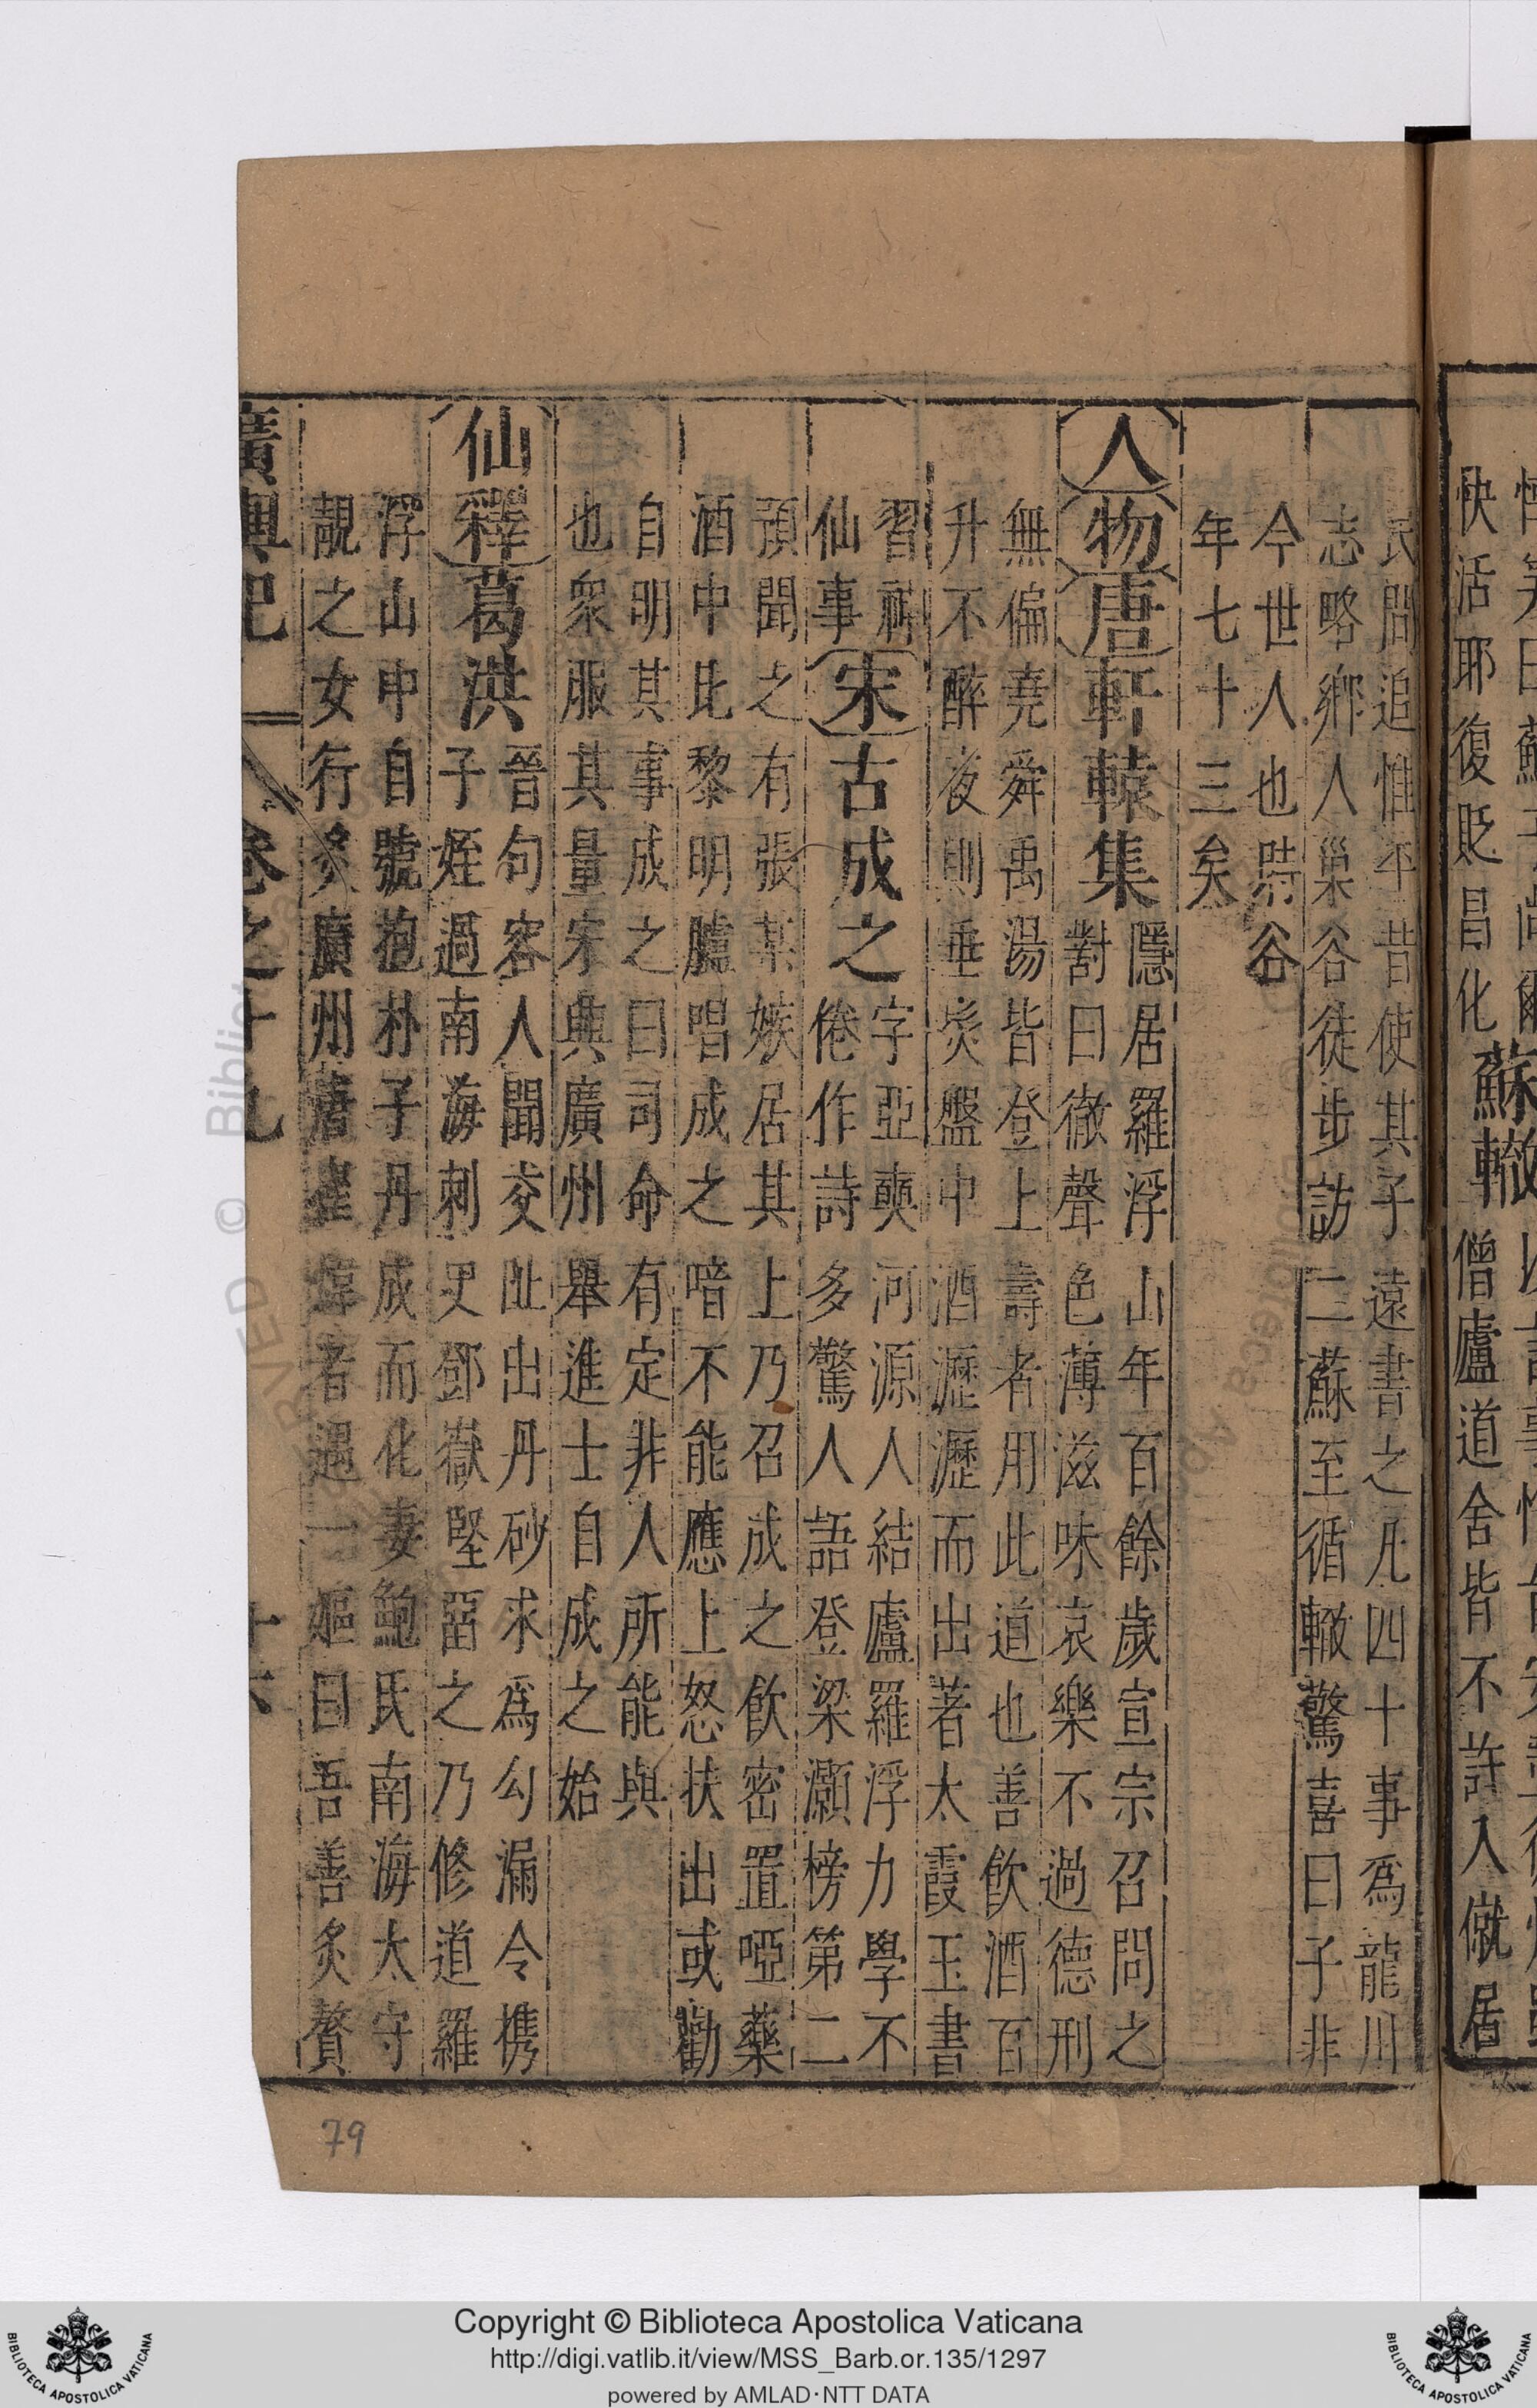 快活耶復貶昌化
蘇轍
僧廬道舍皆不許入僦居
民間追惟平昔使其子遠書之凡四十事爲龍川
志略鄉人巢谷徒步訪二蘇至循轍驚喜曰子非
今世人也時谷
年七十三矣
人物
唐
軒轅集
隱居羅浮山年百餘歲宣宗召問之
對曰徹聲色薄滋味哀樂不過德刑
無偏堯舜禹湯皆登上壽者用此道也善飲酒百
升不醉夜則垂髮盤中酒瀝瀝而出著太霞玉書
習
仙事
宋
古成之
字亞奭河源人結廬羅浮力學不
倦作詩多驚人語登梁灝榜第二
預聞之有張某嫉居其上乃召成之飲密置啞藥
酒中比黎明臚唱成之喑不能應上怒扶出或勸
自明其事成之曰司命有定非人所能與
也衆服其量宋興廣州舉進士自成之始
仙釋
葛洪
晉句容人聞交趾出丹砂求爲勾漏令携
子姪過南海刺史鄧嶽堅留之乃修道羅
浮山中自號抱朴子丹成而化妻鮑氏南海太守
靚之女行灸廣州唐崔煒者遇一嫗曰吾善灸贅
廣輿記
卷之十九
十六
79
Copyright © Biblioteca Apostolica Vaticana
http://digi.vatlib.it/view/MSS_Barb.or.135/1297
powered by AMLAD·NTT DATA